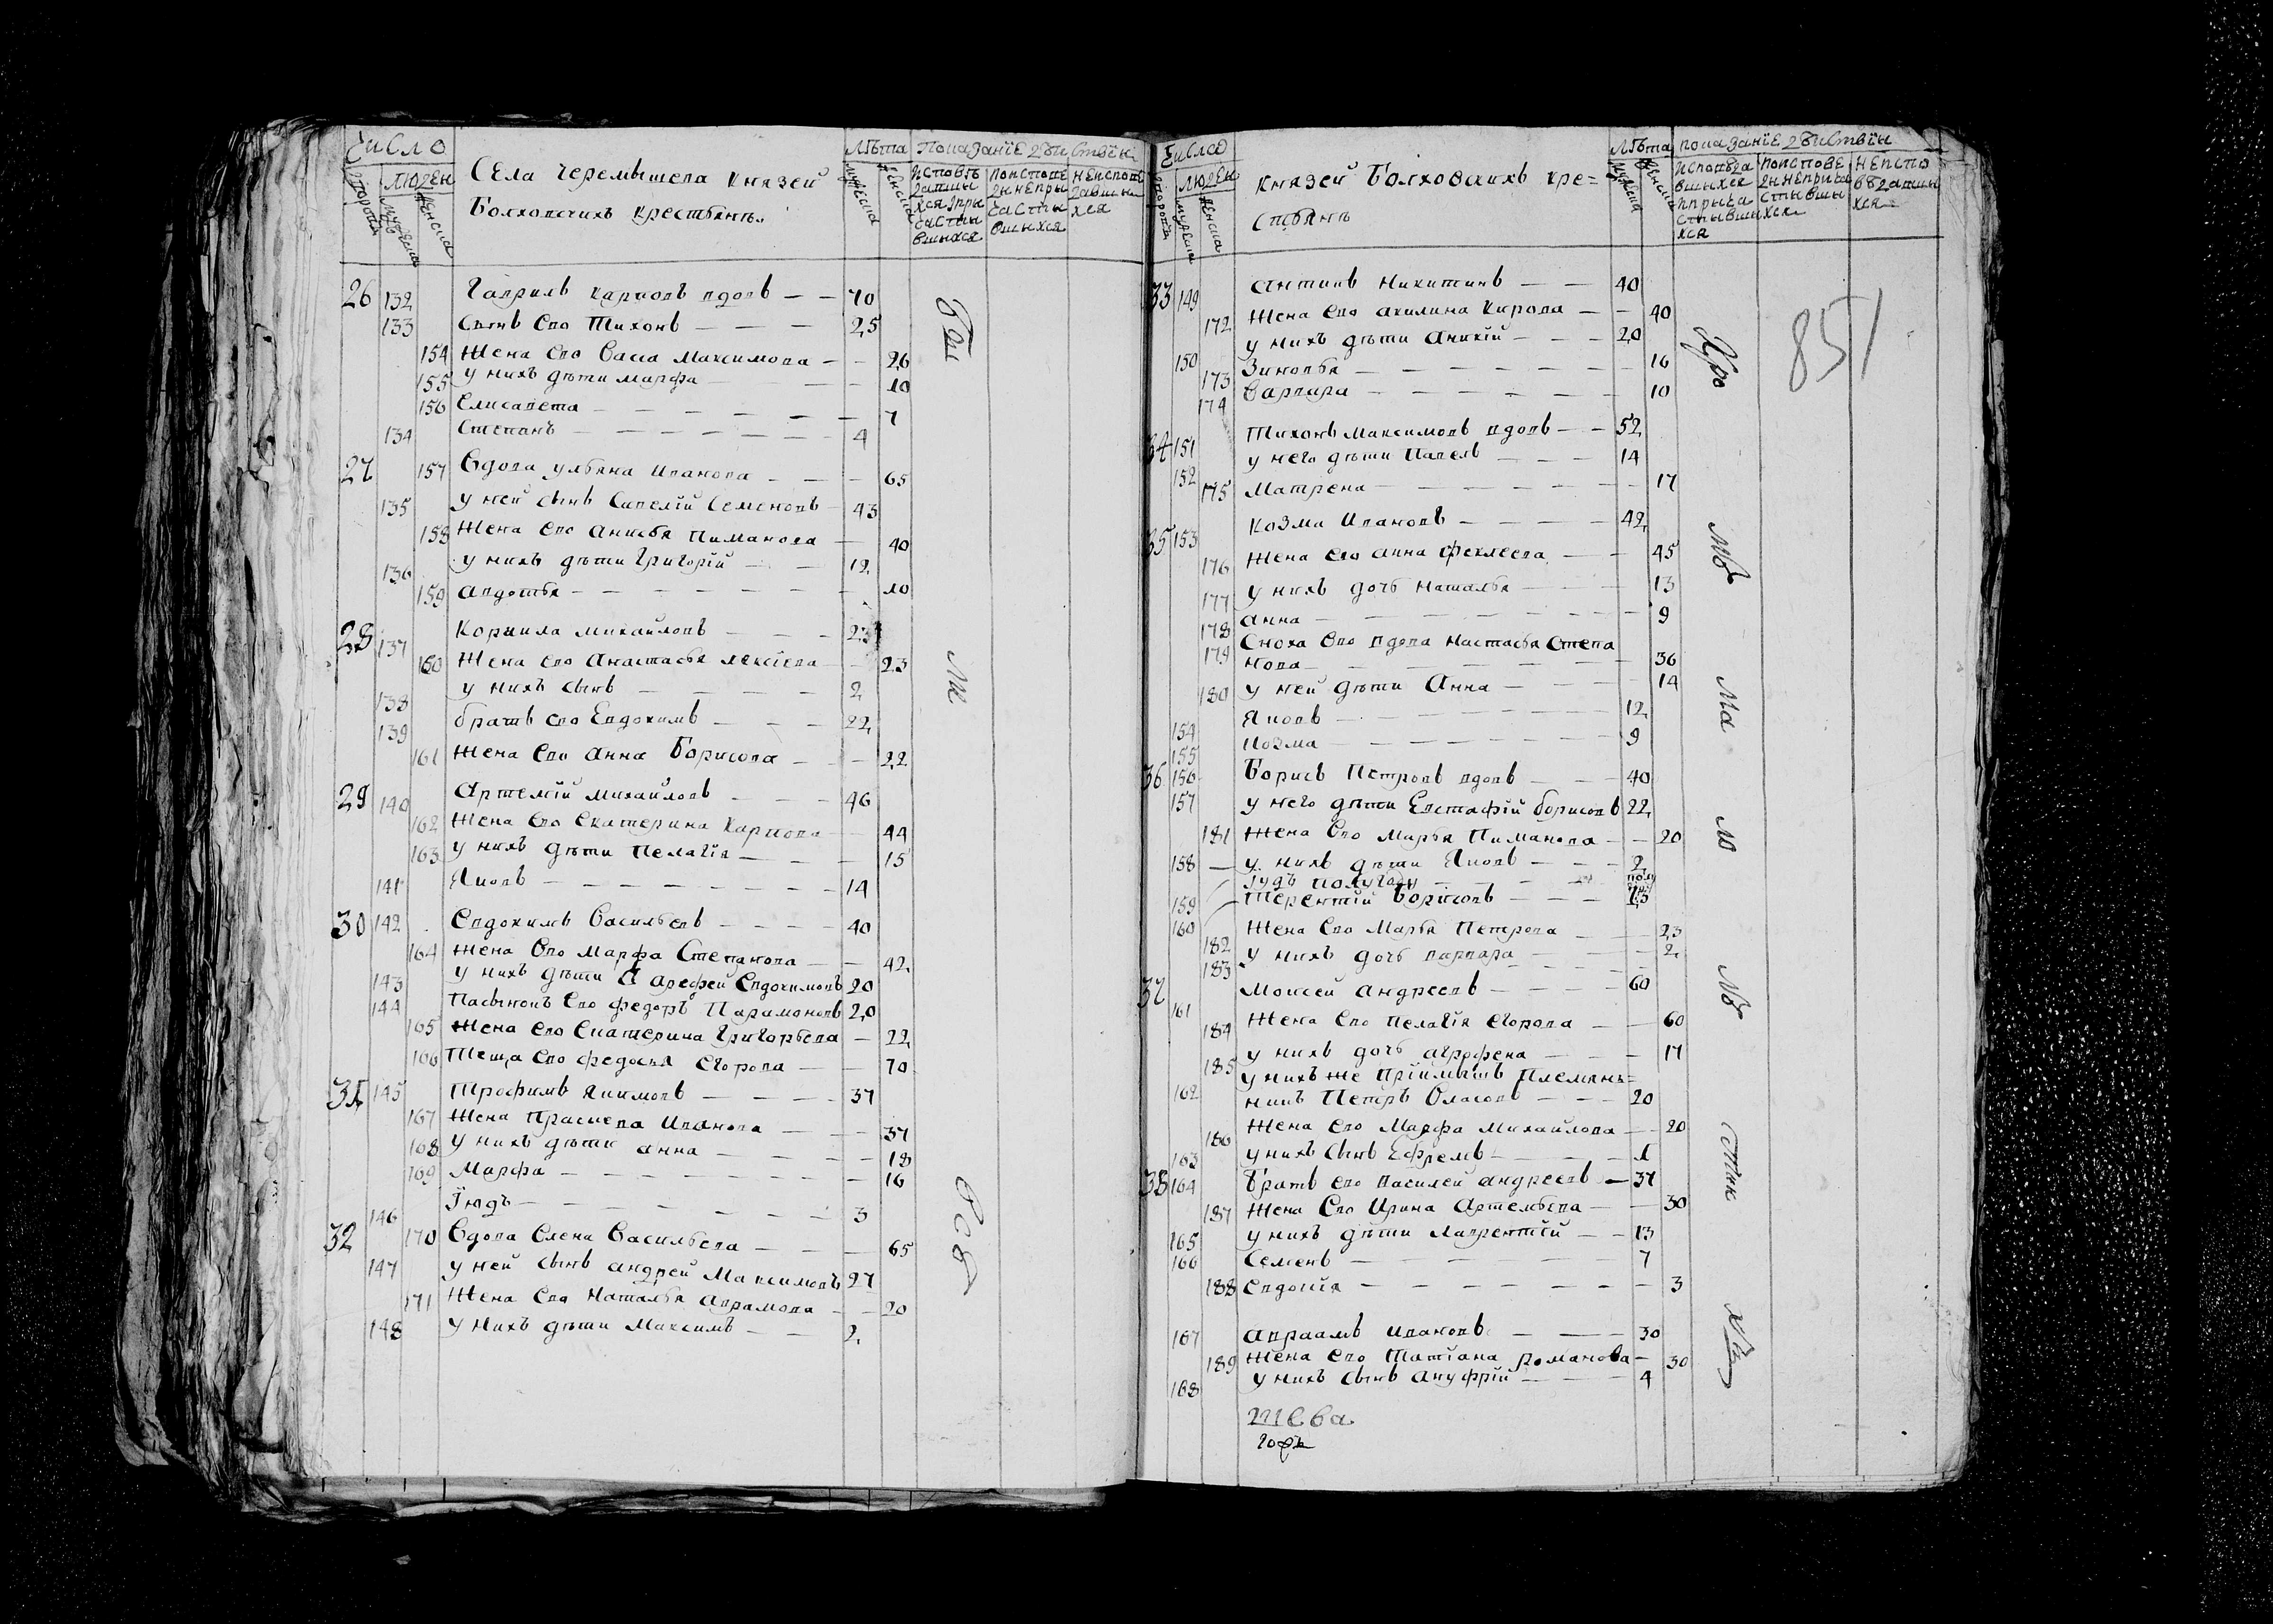 Число
людей
Села Черемышева Князей
Болховскихъ крестьянъ.
Лѣта
Показанїе дѣиствїи
26 132 Гаврилъ карповъ вдовъ — — 70
133 Сынъ Ево Тихонъ — — — 25
154 Жена Ево Васса Максимова — — 26
155 у нихъ дѣти марфа — — — 10
156 Елисавета — — — — — — 7
134 Степанъ — — — — — — 4
27 157 Вдова ульяна Иванова — — — 65
135 у ней сынъ Савелїй Семеновъ — 43
158 Жена Ево анисья Пиманова — 40
136 у нихъ дѣти Григорїй — — 12
159 авдотья — — — — — — — 10
28 137 Корнила михайловъ — — — 23
160 Жена ево анастасья лексїева — — 23
138 у нихъ сынъ — — — — 2
139 братъ ево Евдокимъ — — — 22
161 Жена Ево анна Борисова — — 22
29 140 Артемїй михайловъ — — — 46
162 Жена Ево Екатерина Карпова — 44
163 у нихъ дѣти Пелагїя — — — 15
141 Яковъ — — — — — — — — 14
30 142 Евдокимъ Васильевъ — — — — 40
164 жена Ево Марфа Степанова — — 42
143 у нихъ дѣти арефей Евдокимовъ 20
144 Пасынокъ Ево федоръ Парамоновъ 20
165 Жена ево Екатерина Григорьева — 22
166 Теща ево федосья Егорова — — 70
31 145 Трофимъ Якимовъ — — — — 37
167 Жена Прасковa Иванова — — — 37
168 у нихъ дѣти анна — — — — 18
169 Марфа — — — — — — — — 16
146 Їюдъ — — — — — — — — 3
32 170 Вдова Елена Васильева — — — 65
147 у ней сынъ андрей Максимовъ 27
171 Жена Ево Наталья аврамова — — 20
148 у нихъ дѣти Максимъ — — 2
Число
людей
Князей Болховскихъ кре=
стьянъ
Лѣта
показанїе дѣиствїи
851
33 149 антипъ Никитинъ — — 40
172 Жена Ево акилина Кирова — — 40
150 у нихъ дѣти Аникїй — — — 20
173 Зиновья — — — — — — — 16
174 Варвара — — — — — — 10
34 151 Тихонъ Максимовъ вдовъ — — 52
152 у него дѣти Павелъ — — — 14
175 Матрена — — — — — — — 17
35 153 Козма Ивановъ — — — — 42
176 Жена ево анна фекλеева — — 45
177 у нихъ дочь Наталья — — — 13
178 анна — — — — — — — — 9
179 Сноха Ево вдова Настасья Степа
нова — — — — — — — — 36
180 у ней дѣти Анна — — — — 14
154 Яковъ — — — — — — — 12
155 Козма — — — — — — — 9
36 156 Борисъ Петровъ вдовъ — — — 40
157 у него дѣти Евстафїй борисовъ 22
181 Жена Ево Марья Пиманова — — 20
158 — у нихъ дѣти Яковъ — — — 2
їудъ полугоду — — — полу
159 Терентїй Борисовъ — — — 23
160 182 Жена Ево Марья Петрова — — 23
183 у нихъ дочь варвара — — — 2
37 161 Моисей андреевъ — — — — 60
184 Жена Ево Пелагїя Егорова — — 60
185 у нихъ дочь агрофена — — — 17
у нихъ же прїимышъ Племян=
162 никъ Петръ Власовъ — — — 20
186 Жена Ево Марфа Михайлова — — 20
163 у нихъ сынъ Ефремъ — — — — 1
38 164 Братъ ево василей андреевъ — 37
187 Жена Ево Ирина Артемьева — — 30
165 у нихъ дѣти Лаврентїй — — 13
166 Семенъ — — — — — — — 7
188 Евдокїя — — — — — — — — 3
167 авраамъ ивановъ — — — 30
189 Жена Ево Татїана романова — 30
168 у нихъ сынъ ануфрїй — — — 4